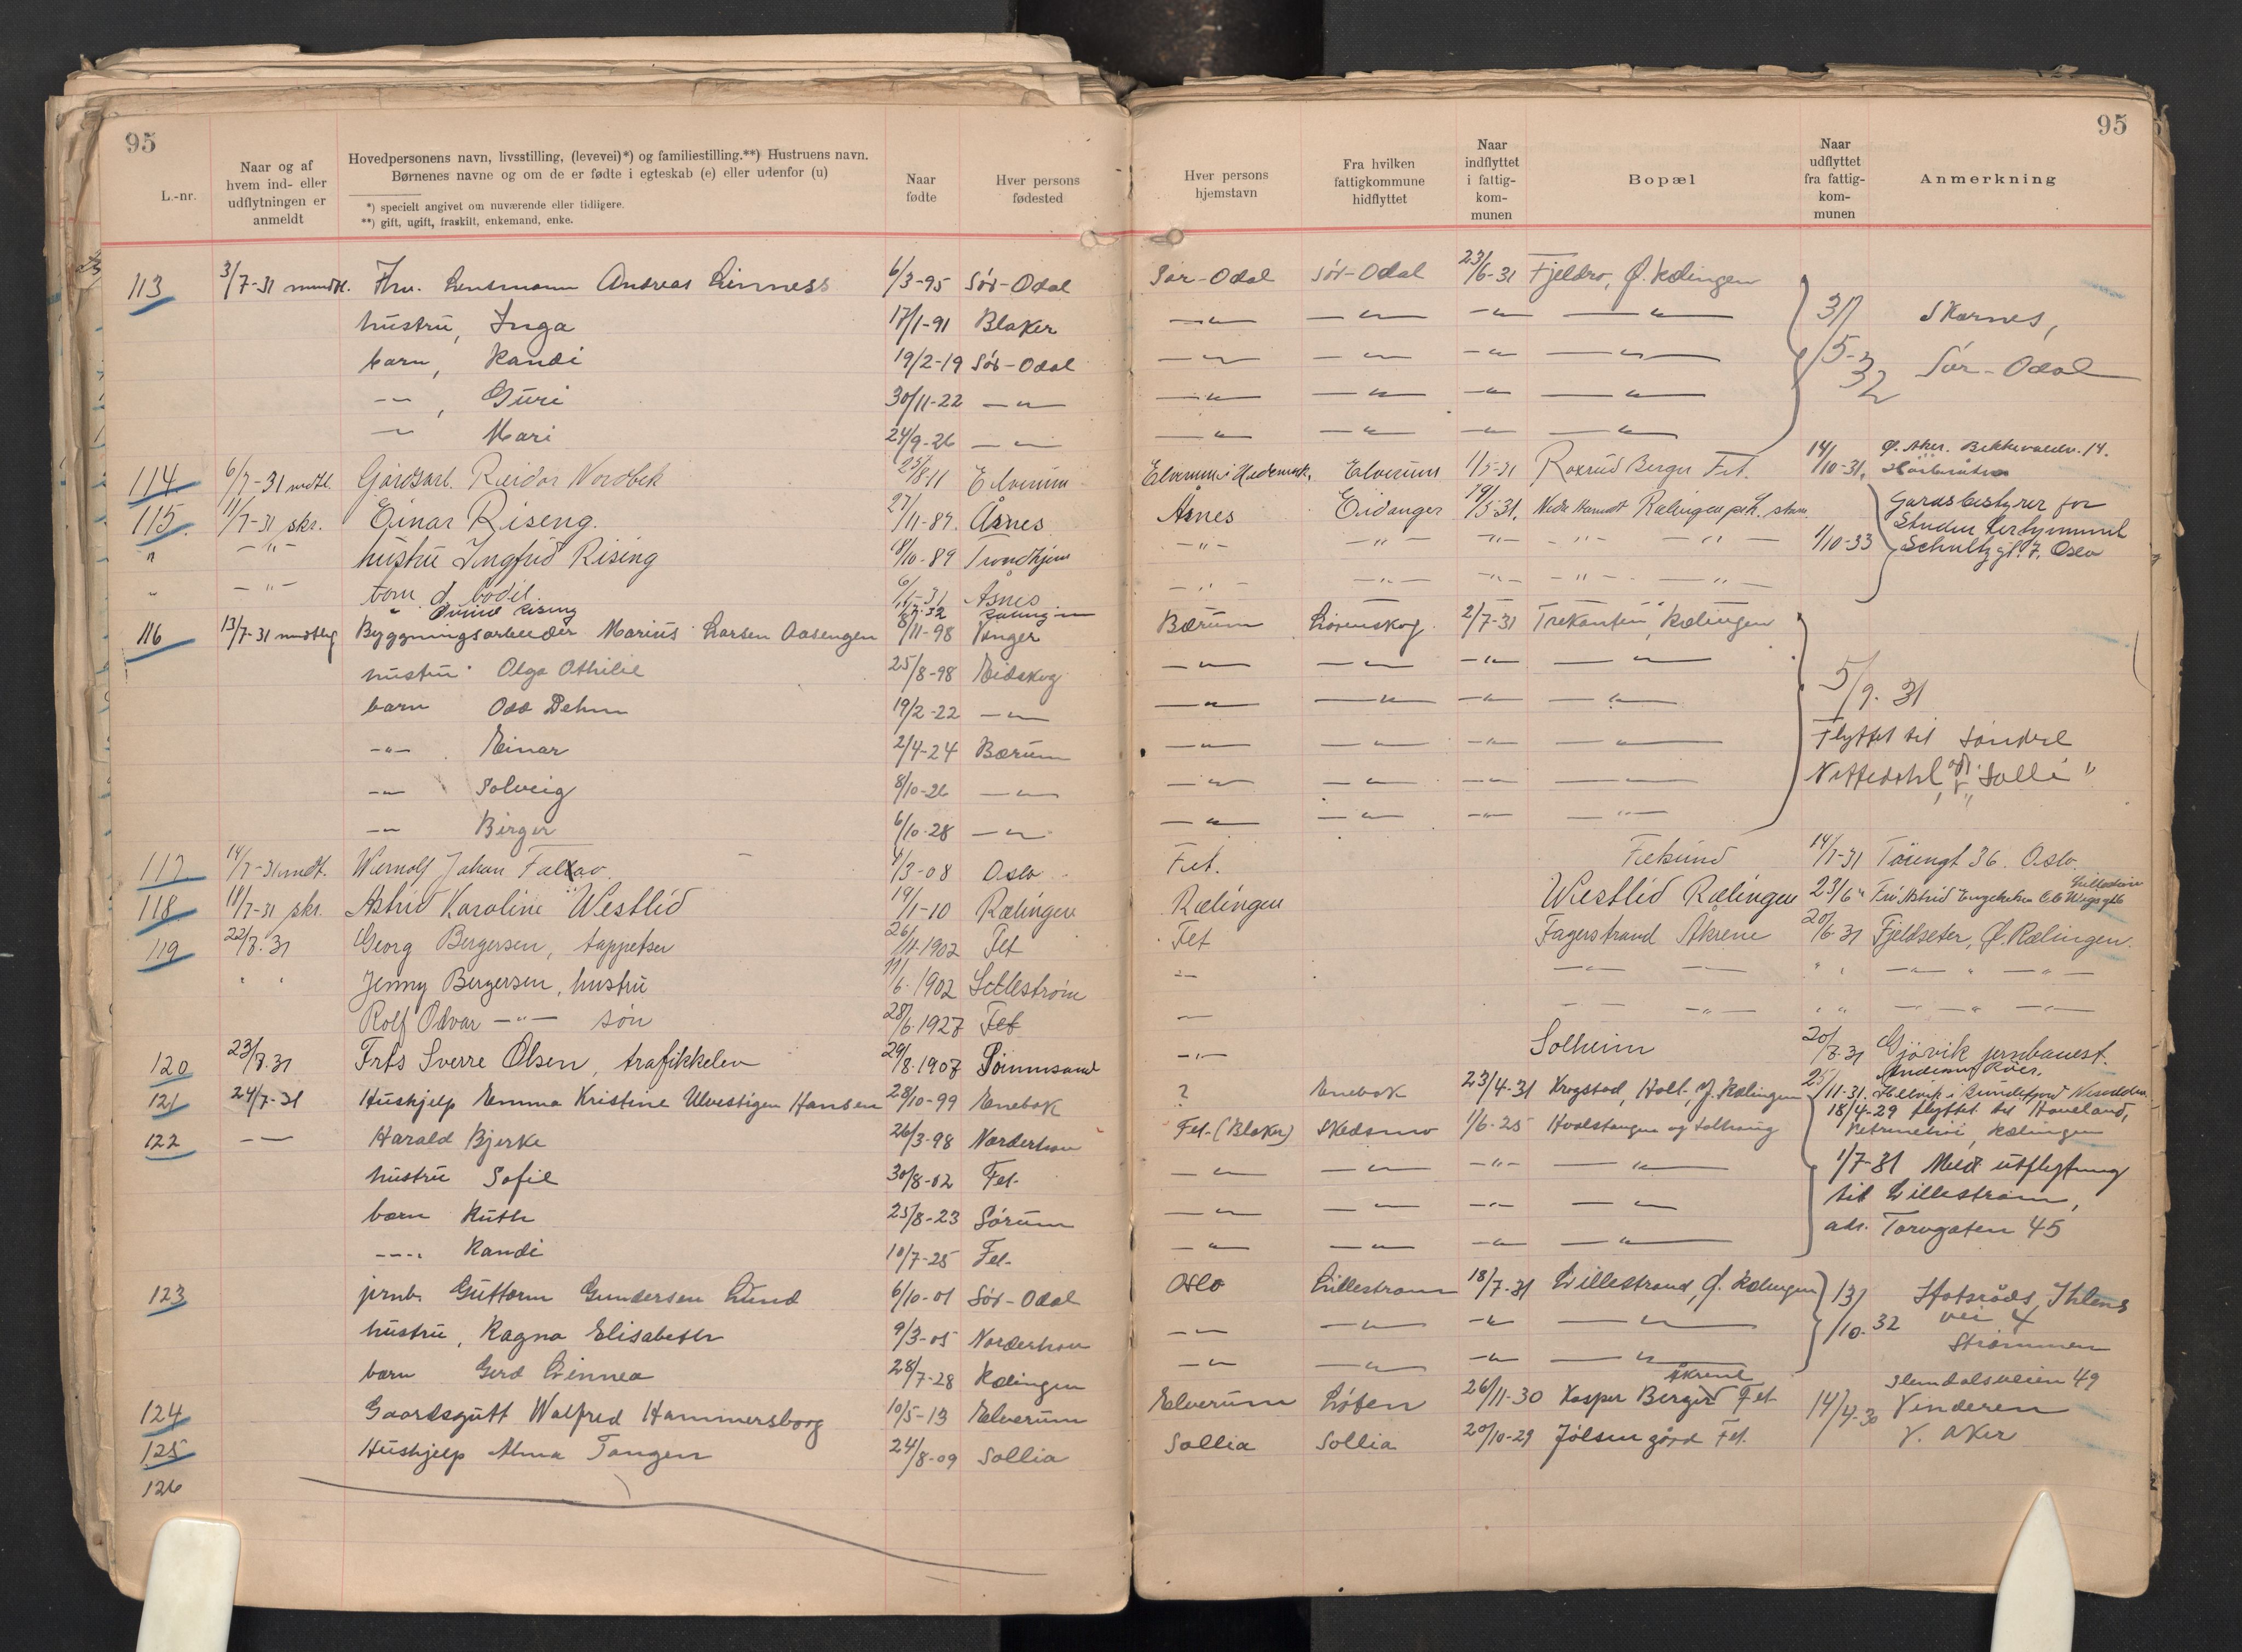 95
95
L.-nr.
Naar og af hvem ind- eller udflytningen er anmeldt
Hovedpersonens navn, livsstilling, (levevei)*) og familiestilling.**) Hustruens navn.
Børnenes navne og om de er fødte i egteskab (e) eller udenfor (u)
*) specielt angivet om nuværende eller tidligere.
**) gift, ugift, fraskilt, enkemand, enke.
Naar fødte
Hver persons fødested
Hver persons hjemstavn
Fra hvilken fattigkommune hidflyttet
Naar indflyttet i fattig-kom-munen
Bopæl
Naar udflyttet fra fattig-kom-munen
Anmerkning
113 3/7-31 mundtl. Fhv. Lensmann Andreas Linness 6/3-95 Sór-Odal Sór-Odal Sór-Odal 23/6-31 Fjeldro, Ø. Rælingen
hustru, Inga 17/1-91 Blaker —"— —"— —"— —"— 31/5-32 Skarnes,
barn, Randi 19/2-19 Sór-Odal —"— —"— —"— —"— Sór-Odal
—"—, Guri 30/11-22 —"— —"— —"— —"— —"—
—"— Mari 24/9-26 —"— —"— —"— —"— —"—
114 6/7-31 mdtl. Gårdsarb. Reidar Nordbek 25/8-11 Elverum Elverum i Hedemark. Elverum 1/5-31 Roxrud Berger Fet. 14/10-31. Ø. Aker. Bekkevoldv. 14.
115. 11/7-31 skr. Einar Riseng. 27/11-89. Åsnes Åsnes Eidanger 19/5-31. Rælingen Gardsbestyrer for
" —"— hustru Ingfrid Rising 9/10-89 Trondhjem —"— —"— —"— —"— —"— 1/10-33 Schultzgt. 7. Oslo
" —"— barn d. bodil. 6/1-31 Åsnes —"— —"— —"— —"— —"—
" Rising Rælingen
116 13/7-31 mundtlig Byggningsarbeider Marius Larsen Aasengen 8/11-98 Vinger Bærum Lørenskog. 2/7-31 Trekanten, Rælingen
hustru Olga Othilie 25/8-98 Eidskog —"— —"— —"— —"—
barn Odd Dehn 19/2-22 —"— —"— —"— —"— —"— 5/9-31
—"— Einar 2/4-24 Bærum —"— —"— —"— —"— Flyttet til Søndre
—"— Solveig 8/10-26 —"— —"— —"— —"— —"— Nittedahl, "Solli"
—"— Birger 6/10-28 —"— —"— —"— —"— —"—
117 14/7-31 mdt. Johan 4/3-08 Oslo Fet. Fetsund 14/7-31 36. Oslo.
118 18/7-31 skr. Astrid Karoline Westlid 19/1-10 Rælingen Rælingen Westlid Rælingen 23/6 " Frú Astrid Lillestrøm
119 22/7.31 Georg Bergersen, tappetser 26/11-1902 Fet Fet Fagerstrand Åkrene 20/6-31 Fjeldseter, Ø. Rælingen.
" " Jenny Bergersen, hustru 11/6-1902 Lillestrøm —"— —"— —"— " " —"— " —"—
Rolf Odvar —"— søn 28/6-1927 Fet —"— —"— " " —"— " —"—
120 23/7.31 Frts Sverre Olsen, trafikkelev 29/8.1907 Sørumsand —"— Solheim 20/7-31 Gjøvik jernbanest.
121 24/7-31 Hushjelp Emma Kristine Ulvestigen Hansen 28/10-99 Enebak ? Enebak 23/4-31 Krogstad, Holt, N. Rælingen 25/11-31.
122 —"— Harald Bjerke 26/3-98 Norderhov Fet-(Blaker) Skedsmo 1/6-25 Hvalstangen og Solhaug 18/4-29 flyttet til Rælingen
hustru Sofie 30/8-02 Fet- —"— —"— —"— —"— 1/7-31 Meldt utflytning
barn Ruth 25/8-23 Sørum —"— —"— —"— —"— til Lillestrøm,
—"— Randi 10/7-25 Fet- —"— —"— —"— —"— adr. Torvgaten 45
123 jrnb. Guttorm Gundersen Lund 6/10-01 Sór-Odal Oslo Lillestrøm 18/7-31 Lillestrand, Ø. Rælingen 13/10-32 Ihlens vei 4
hustru, Ragna Elisabeth 9/3-05 Norderhov —"— —"— —"— —"— Strømmen
barn Gerd Linnea 28/7-28 Rælingen —"— —"— —"— —"—
124 Gaardsgutt Walfred Hammersborg 10/5-13 Elverum Elverum Løten 26/11-30 Kasper Berger Åkrene Fet 14/4-30 Slemdalsveien 49 Vinderen
125 Hushjelp Alma Tangen 24/8-09 Sollia Sollia Sollia 20/10-29 Jølsen gård Fet. V. Aker
126